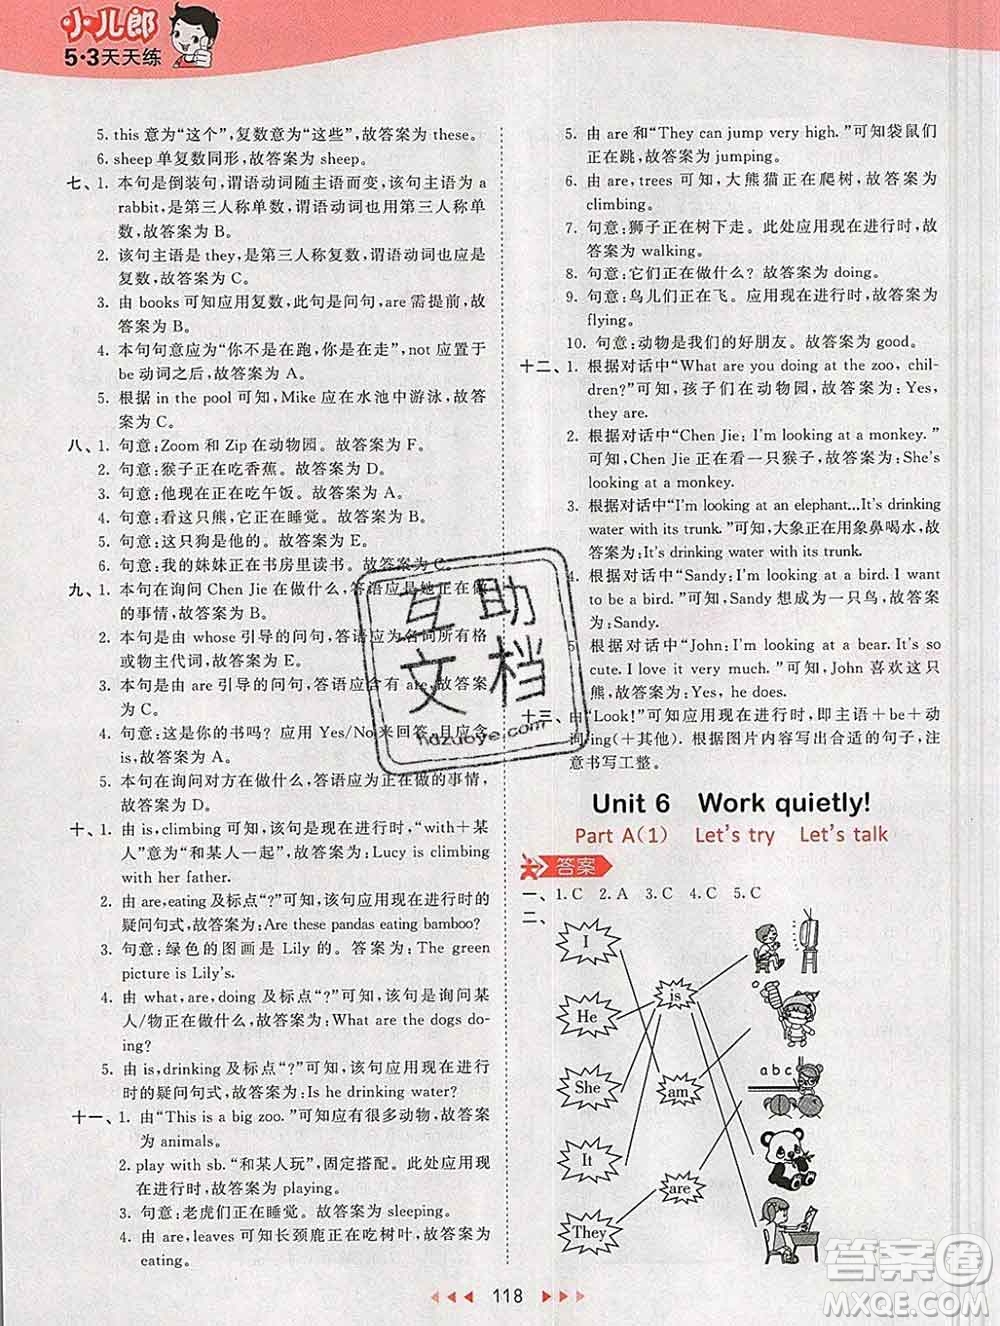 小儿郎
5·3天天练
5. this 意为“这个”,复数意为“这些”,故答案为 these。
6. sheep 单复数同形,故答案为 sheep。
七、1. 本句是倒装句,谓语动词随主语而变,该句主语为 a
rabbit,是第三人称单数,谓语动词也用第三人称单
数,故答案为 B。
2. 该句主语是 they,是第三人称复数,谓语动词也应是
复数,故答案为 C。
3. 由 books 可知应用复数,此句是问句,are 需提前,故
答案为 B。
4. 本句句意应为“你不是在跑,你是在走”,not 应置于
be 动词之后,故答案为 A。
5. 根据 in the pool 可知,Mike 应在水池中游泳,故答
案为 B。
八、1. 句意:Zoom 和 Zip 在动物园。故答案为 F。
2. 句意:猴子正在吃香蕉。故答案为 D。
3. 句意:他现在正在吃午饭。故答案为 B。
4. 句意:看这只熊,它正在睡觉。故答案为 A。
5. 句意:这只狗是他的。故答案为 E。
6. 句意:我的妹妹正在书房里读书。故答案为 C。
九、1. 本句在询问 Chen Jie 在做什么,答语应是她正在做
的事情,故答案为 B。
2. 本句是由 whose 引导的问句,答语应为名词所有格
或物主代词。故答案为 E。
3. 本句是由 are 引导的问句,答语应含有 are,故答案
为 C。
4. 句意:这是你的书吗? 应用 Yes/No来回答,且应含
is,故答案为 A。
5. 本句在询问对方在做什么,答语应为正在做的事情,
故答案为 D。
十、1. 由 is,climbing 可知,该句是现在进行时,“with+某
人”意为“和某人一起”,故答案为:Lucy is climbing
with her father.
2. 由 are,eating 及标点“?”可知,该句是现在进行时的
疑问句式,故答案为:Are these pandas eating bamboo?
3. 句意:绿色的图画是 Lily 的。答案为:The green
picture is Lily's.
4. 由 what,are,doing 及标点“?”可知,该句是询问某
人/物正在做什么,故答案为:What are the dogs do-
ing?
5. 由 is,drinking 及标点“?”可知,该句应用现在进行
时的疑问句式,故答案为:Is he drinking water?
十一、1. 由“This is a big zoo.”可知应有很多动物,故答案
为 animals。
2. play with sb. “和某人玩”,固定搭配。此处应用现
在进行时,故答案为 playing。
3. 句意:老虎们正在睡觉。故答案为 sleeping。
4. 由 are,leaves 可知长颈鹿正在吃树叶,故答案为
eating。
5. 由 are 和“They can jump very high.”可知袋鼠们
正在跳,故答案为 jumping。
6. 由 are, trees 可知, 大熊猫正在爬树,故答案为
climbing。
7. 句意:狮子正在树下走。此处应用现在进行时,故
答案为 walking。
8. 句意:它们正在做什么? 故答案为 doing。
9. 句意:鸟儿们正在飞。应用现在进行时,故答案为
flying。
10. 句意:动物是我们的好朋友。故答案为 good。
十二、1. 根据对话中“What are you doing at the zoo, chil-
dren?”可知,孩子们在动物园,故答案为:Yes,
they are.
2. 根据对话中“Chen Jie: I'm looking at a monkey.”
可知,Chen Jie 正在看一只猴子,故答案为:She's
looking at a monkey.
3. 根据对话中“I'm looking at an elephant...It's drinking
water with its trunk.”可知,大象正在用象鼻喝水,故
答案为:It's drinking water with its trunk.
4. 根据对话中“Sandy: I'm looking at a bird. I want
to be a bird.”可知,Sandy 想成为一只鸟,故答案
为:Sandy.
5. 根据对话中“John: I'm looking at a bear. It's so
cute. I love it very much.”可知, John 喜欢这只
熊,故答案为:Yes, he does.
十三、由“Look!”可知应用现在进行时,即主语+be+动
词ing(+其他)。根据图片内容写出合适的句子,注
意书写工整。
Unit 6 Work quietly!
Part A(1) Let's try Let's talk
答案
一、1. C 2. A 3. C 4. C 5. C
二、
I
He
She
It
They
is
am
are
abc
118
互助
文档
hdzuoye.com
答案圈
MXQE.COM